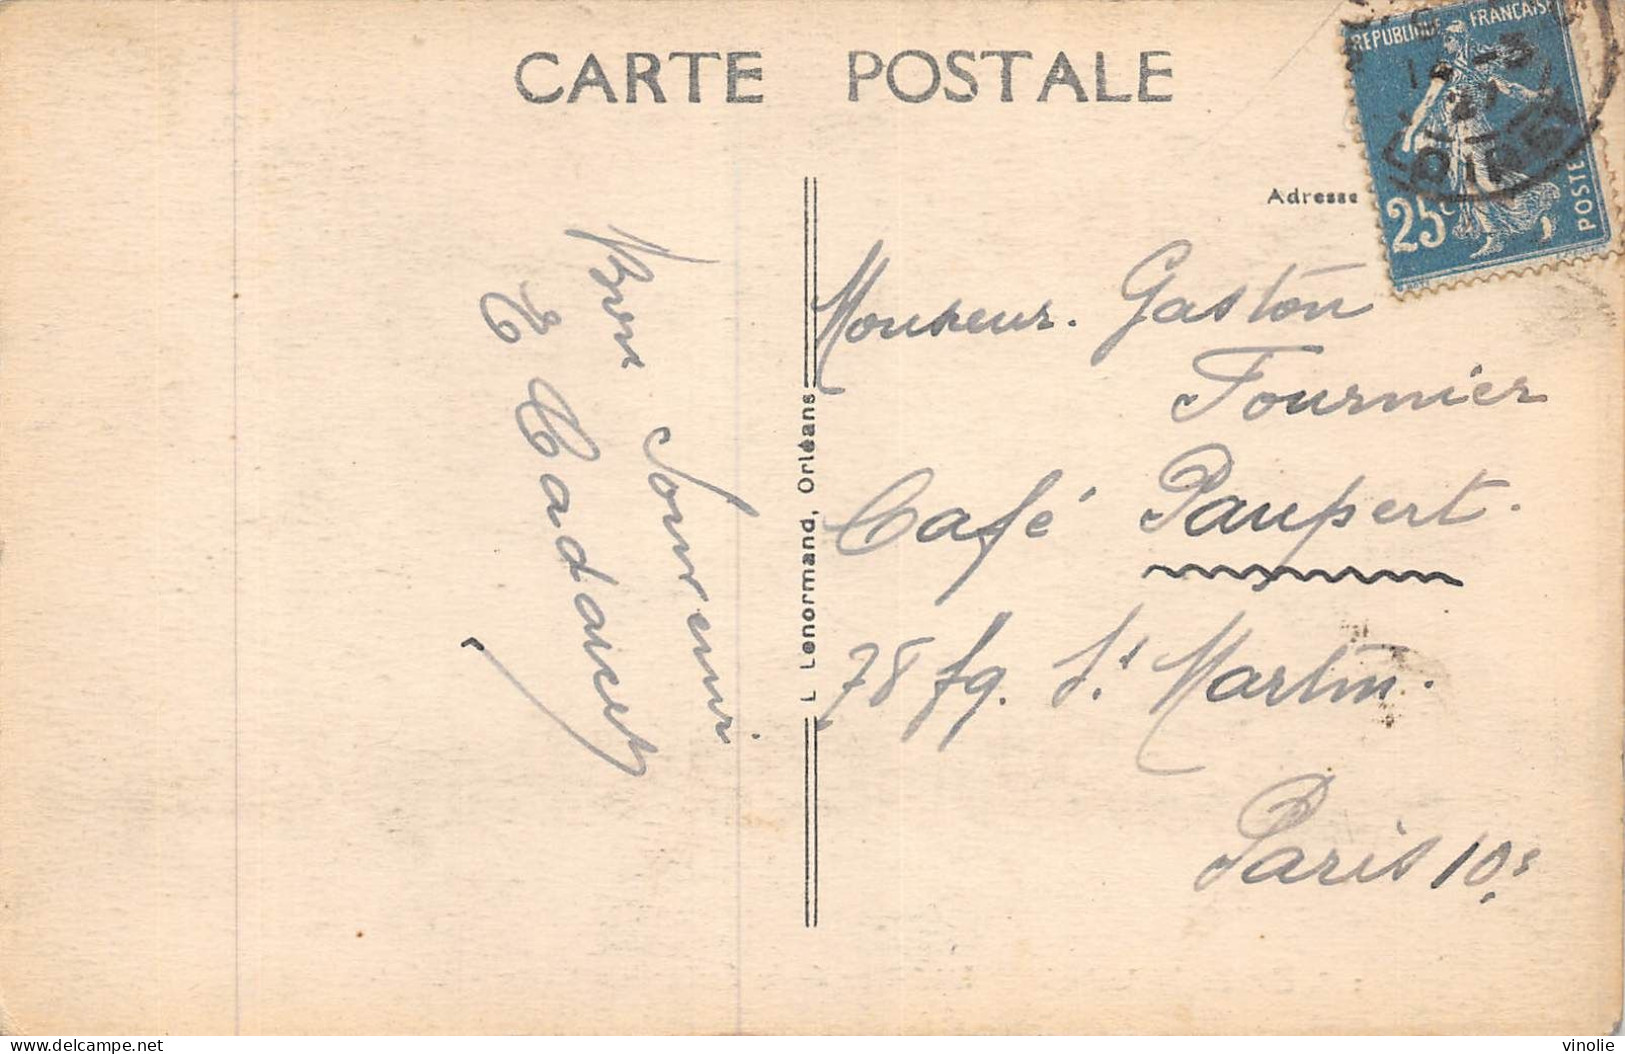 CARTE POSTALE
REPUBLIQUE FRANÇAISE
25c
POSTE
LOIRET
Adresse
Bon Souvenir
L Lenormand, Orléans
Monsieur. Gaston
Fournier
Café Paupert.
78 fg. St Martin.
Paris 10e
vinolie